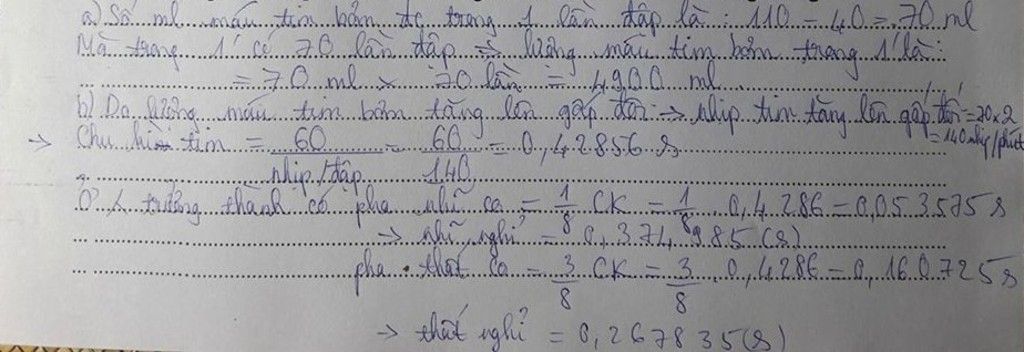 a) Số ml máu tim bơm đc trong 1 lần đập là : 110 - 40 = 70 ml
Mà trong 1' có 70 lần đập ⇒ lượng máu tim bơm trong 1' là:
= 70 ml × 70 lần = 4900 ml
b) Do lượng máu tim bơm tăng lên gấp đôi → nhịp tim tăng lên gấp đôi = 70 x 2
= 140 nhịp/phút
→ Chu kì tim = 60 / nhịp/đập = 60 / 140 = 0,42856 s
Ở trưởng thành có pha nhĩ co = 1/8 CK = 1/8 . 0,4286 = 0,053575 s
→ nhĩ nghỉ = 0,374985 (s)
pha thất co = 3/8 CK = 3/8 . 0,4286 = 0,160725 s
→ thất nghỉ = 0,267835 (s)